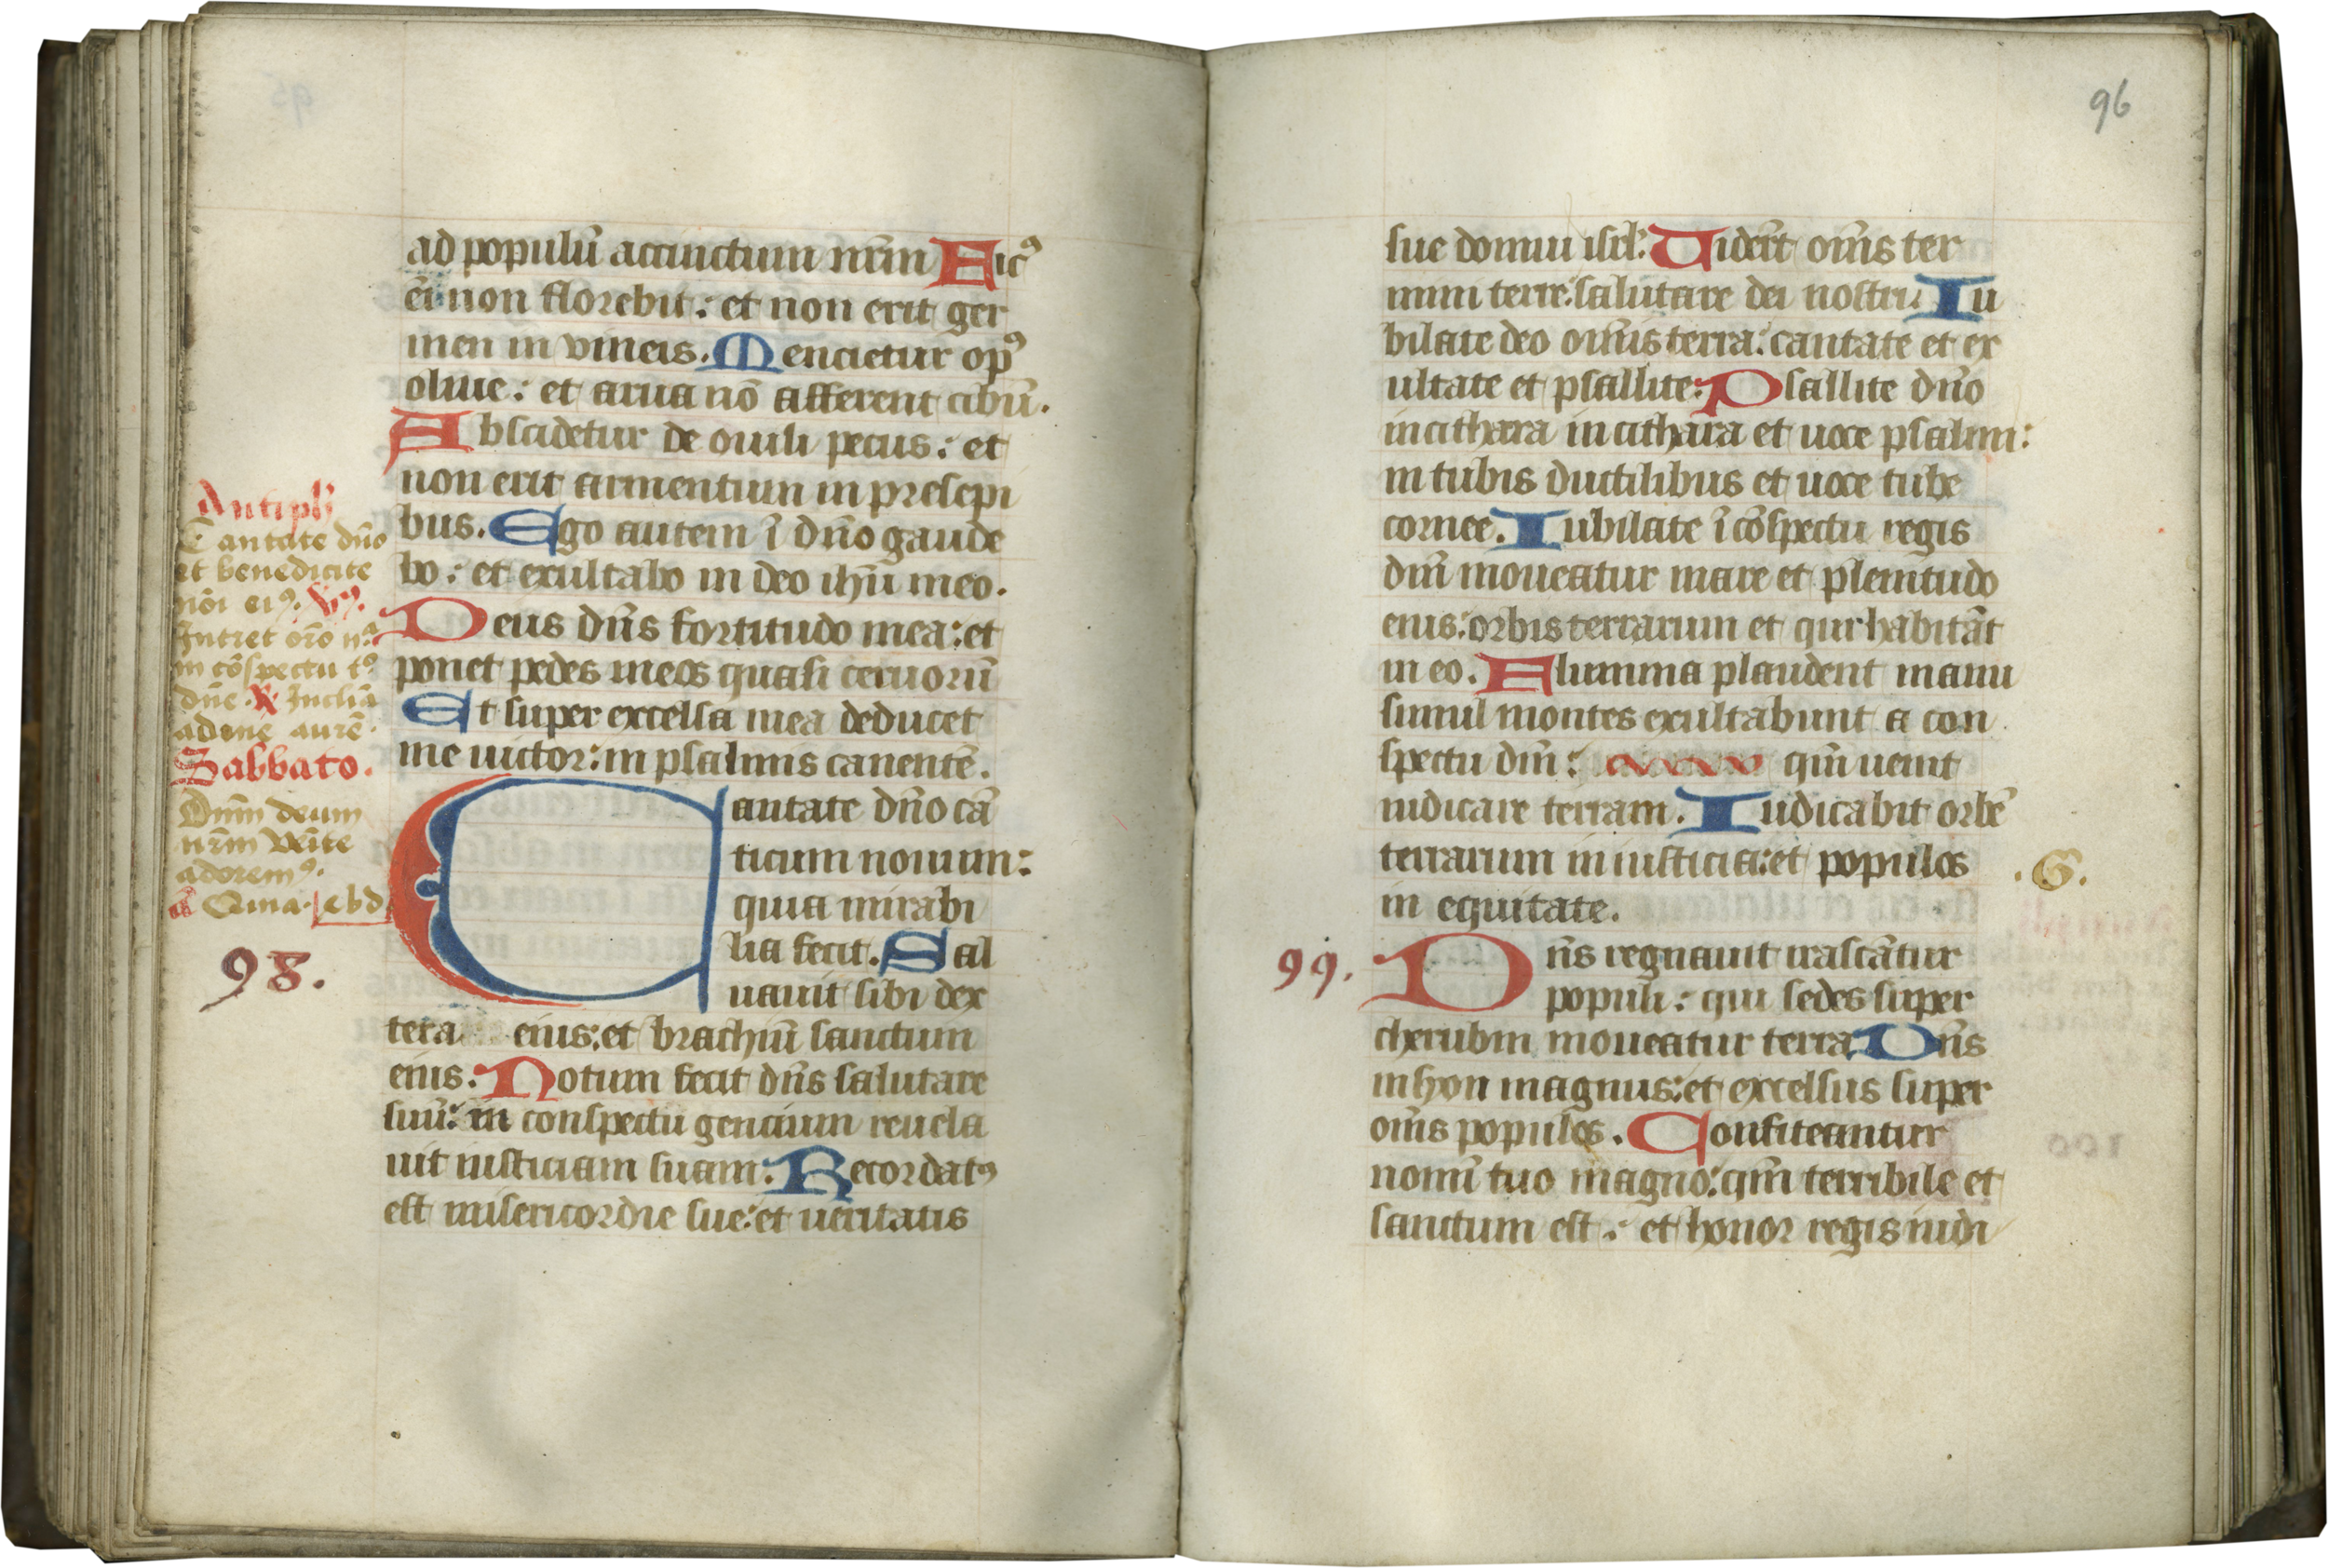 ad populū accinctum nr̄m Ficꝰ
ei̅ non florebit : et non erit ger
men in vineis. Mencietur opꝰ
oliue : et arua nō afferent cibū.
Abscidetur de ouili pecus : et
non erit armentum in presepi
bus. Ego autem ī dn̄o gaude
bo : et exultabo in deo ihū meo.
Deus dn̄s fortitudo mea : et
ponet pedes meos quasi ceruorū
Et super excelsa mea deducet
me uictor : in psalmis canentē.
Antiph
Cantate dn̄o
et benedicite
nōi eiꝰ. Vꝰ.
Intret orō n̄ᵃ
in cōspectu tᵒ
dn̄e. ℟ Inclīa
ad me aurē.
Sabbato.
Dn̄m deum
nr̄m Venite
adoremꝰ.
98.
Cantate dn̄o cā
ticum nouum :
quia mirabi
lia fecit. Sal
uauit sibi dex
tera eius : et brachiū sanctum
eius. Notum fecit dn̄s salutare
suū : in conspectu gencium reuela
uit iusticiam suam : Recordatꝰ
est misericordie sue : et ueritatis
96
sue domui isrl̄ : Viderūt om̄s ter
mini terre : salutare dei nostri Iu
bilate deo om̄is terra : cantate et ex
ultate et psallite : Psallite dn̄o
in cithara in cithara et uoce psalmi :
in tubis ductilibus et uoce tube
cornee. Iubilate ī cōspectu regis
dn̄i moueatur mare et plenitudo
eius : orbis terrarum et qui habitāt
in eo. Flumina plaudent manu
simul montes exultabunt a con
spectu dn̄i : qm̄ uenit
iudicare terram. Iudicabit orbē
terrarum in iusticia : et populos
.G.
in equitate.
99. Dn̄s regnauit irascātur
populi : qui sedes super
cherubin moueatur terra Dn̄s
in syon magnus : et excelsus super
om̄s populos. Confiteantur
nomī tuo magno : qm̄ terribile et
sanctum est : et honor regis iudi